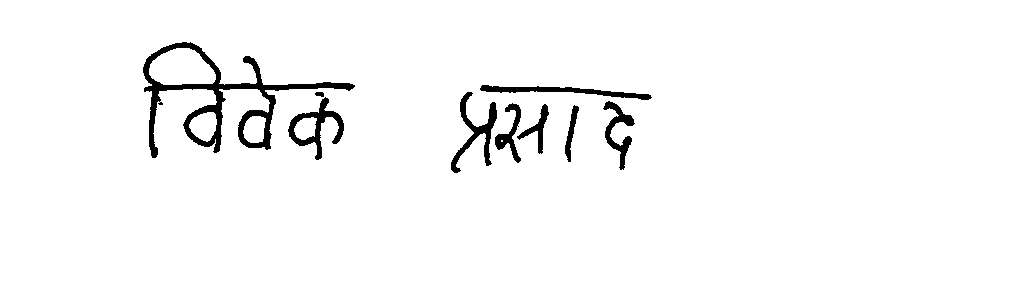 विवेक प्रसाद